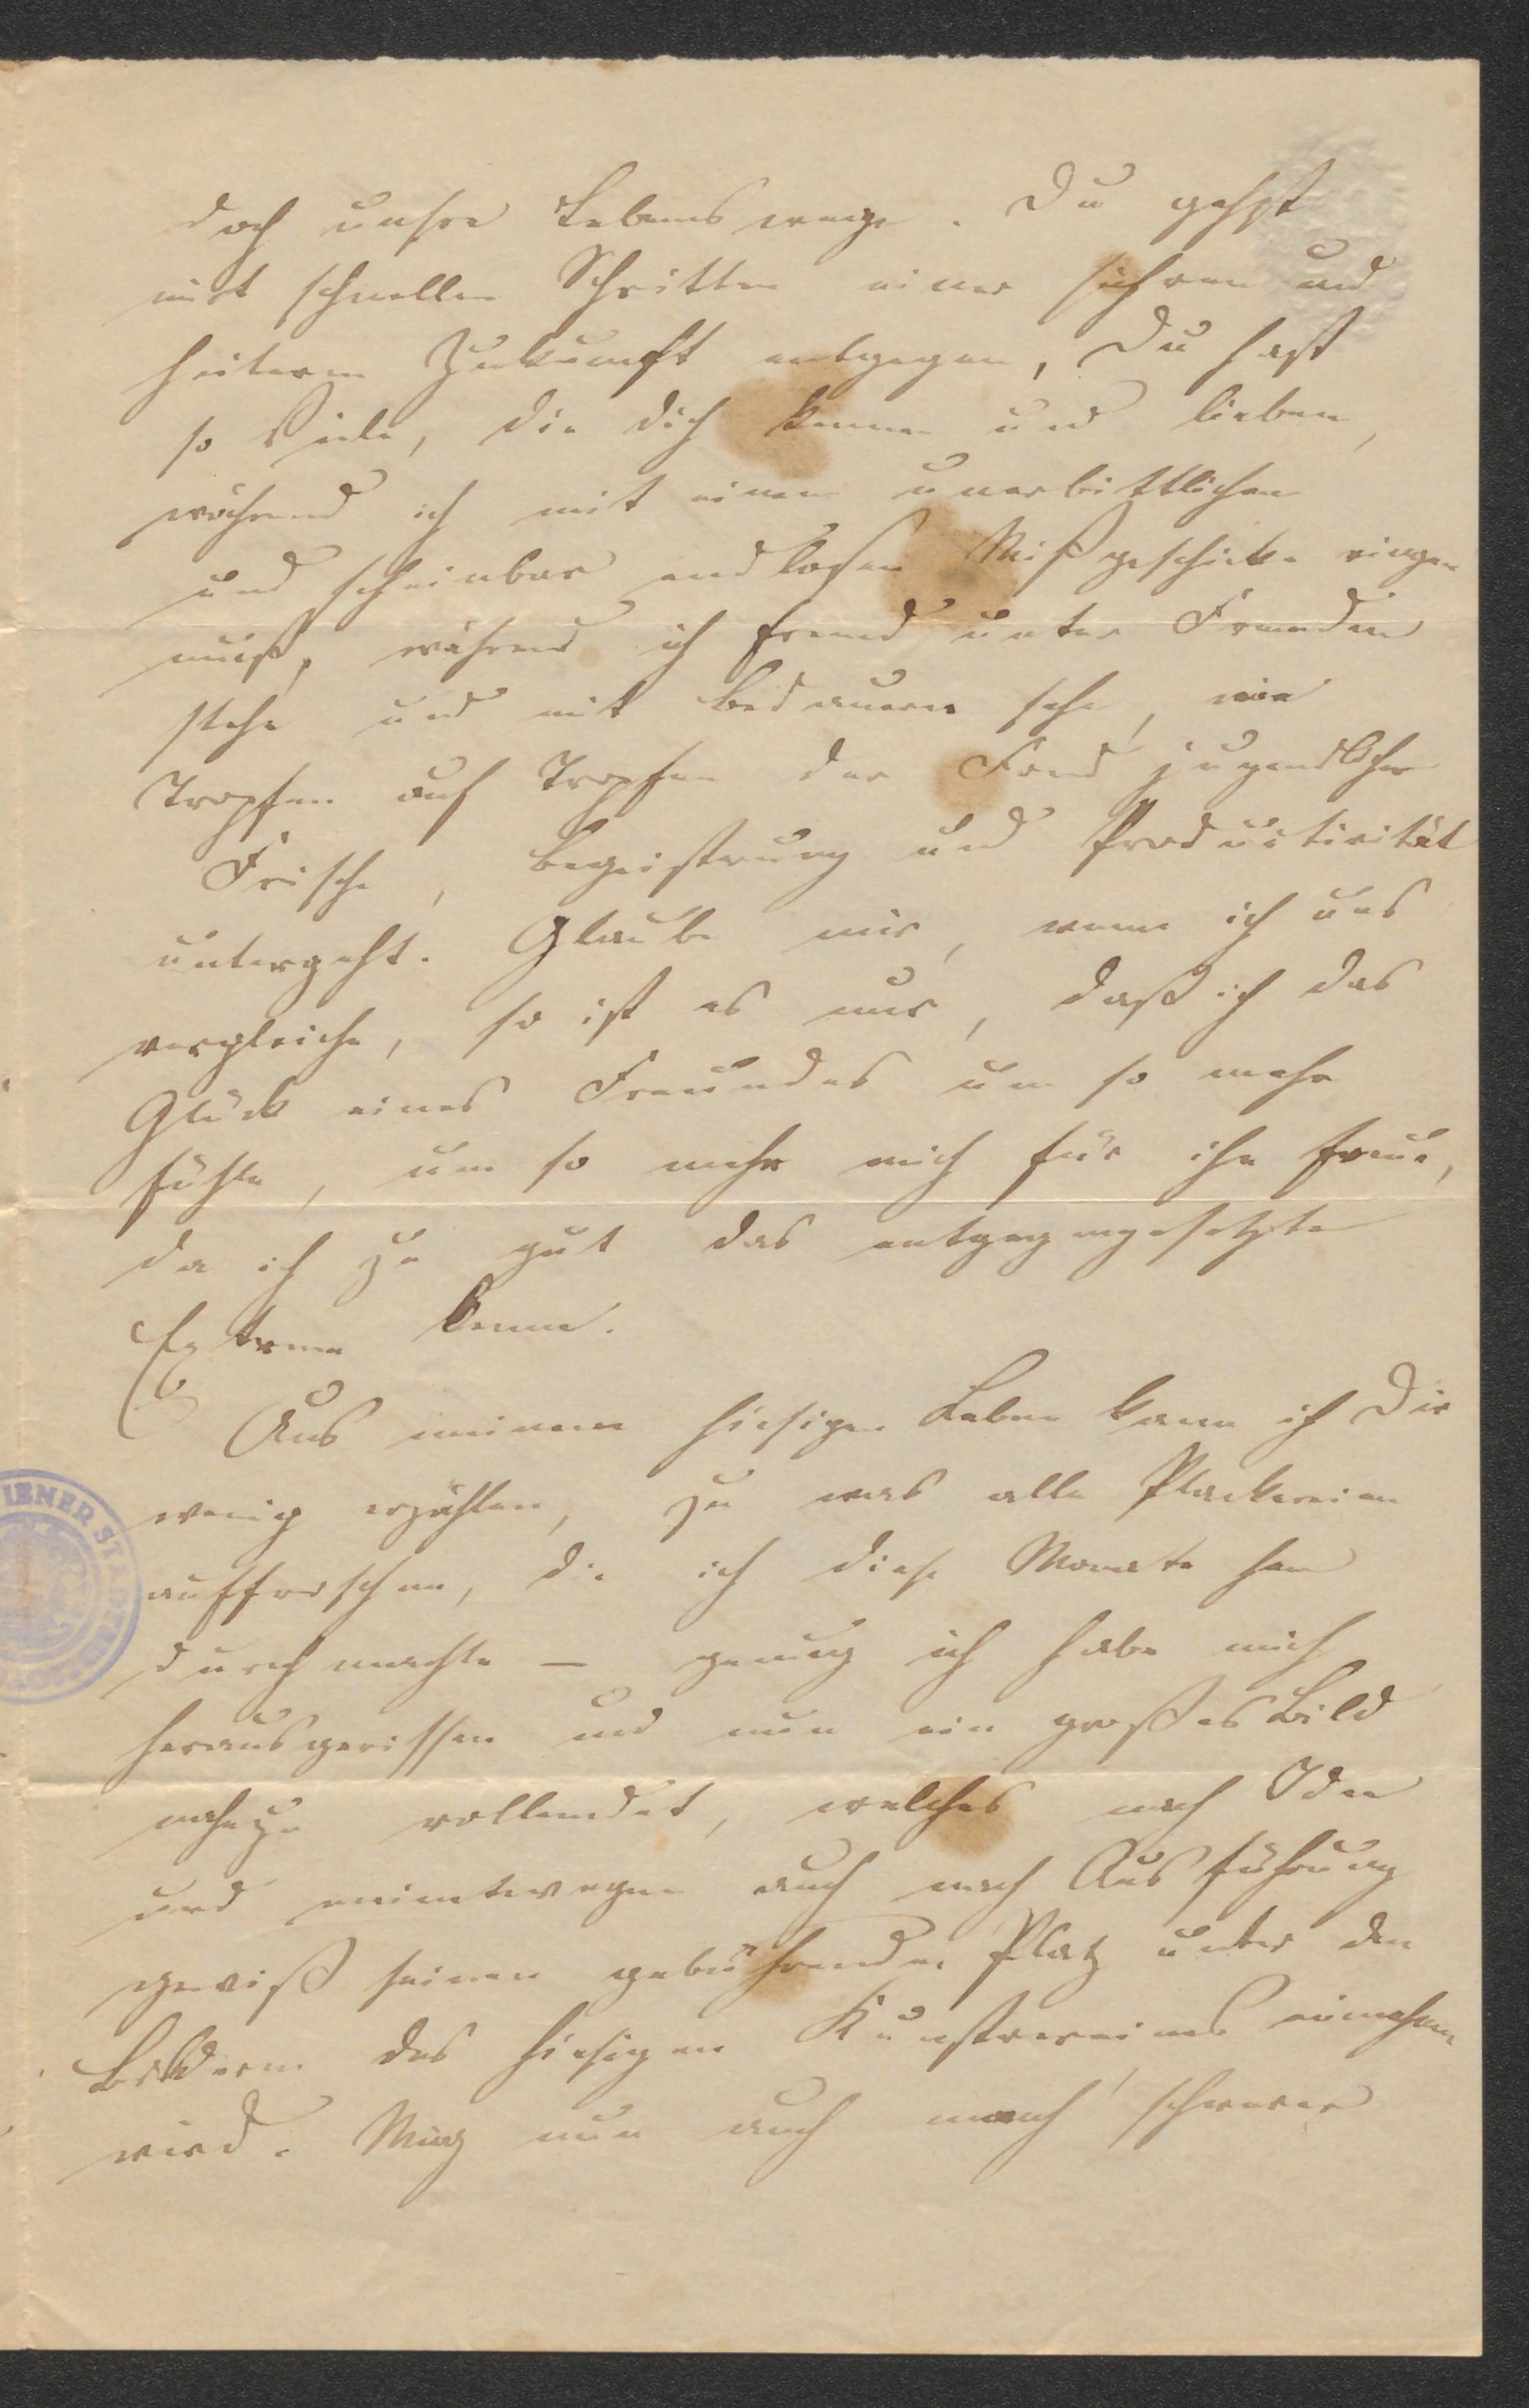 doch unsre Lebenswege. Du gehst
mit schnellen Schritten einer sichren und
heiteren Zukunft entgegen, Du hast
so Viele, die dich kennen und lieben,
während ich mit einem unerbittlichen
und scheinbar endlosen Mißgeschicke ringen
muß, während ich fremd unter Fremden
stehe und mit Bedauern sehe, wie
Tropfen auf Tropfen der Fond jugendlicher
Frische, Begeistrung und Productivität
untergeht. Glaube mir, wenn ich uns
vergleiche, so ist es nur, daß ich das
Glück eines Freundes um so mehr
fühle, um so mehr mich für ihn freue,
da ich zu gut das entgegengesetzte
Extrem kenne.
Aus meinem hiesigen Leben kann ich Dir
wenig erzählen, zu was alle Plackereien
auffrischen, die ich diese Monate her
durchmachte — genug ich habe mich
herausgerissen und nun ein großes Bild
nahezu vollendet, welches nach Idee
und meinetwegen auch nach Ausführung
gewiß seinen gebührenden Platz unter den
Bildern des hiesigen Kunstvereines einnehmen
wird. Mag nun auch manch' schwerer
IENER STADT